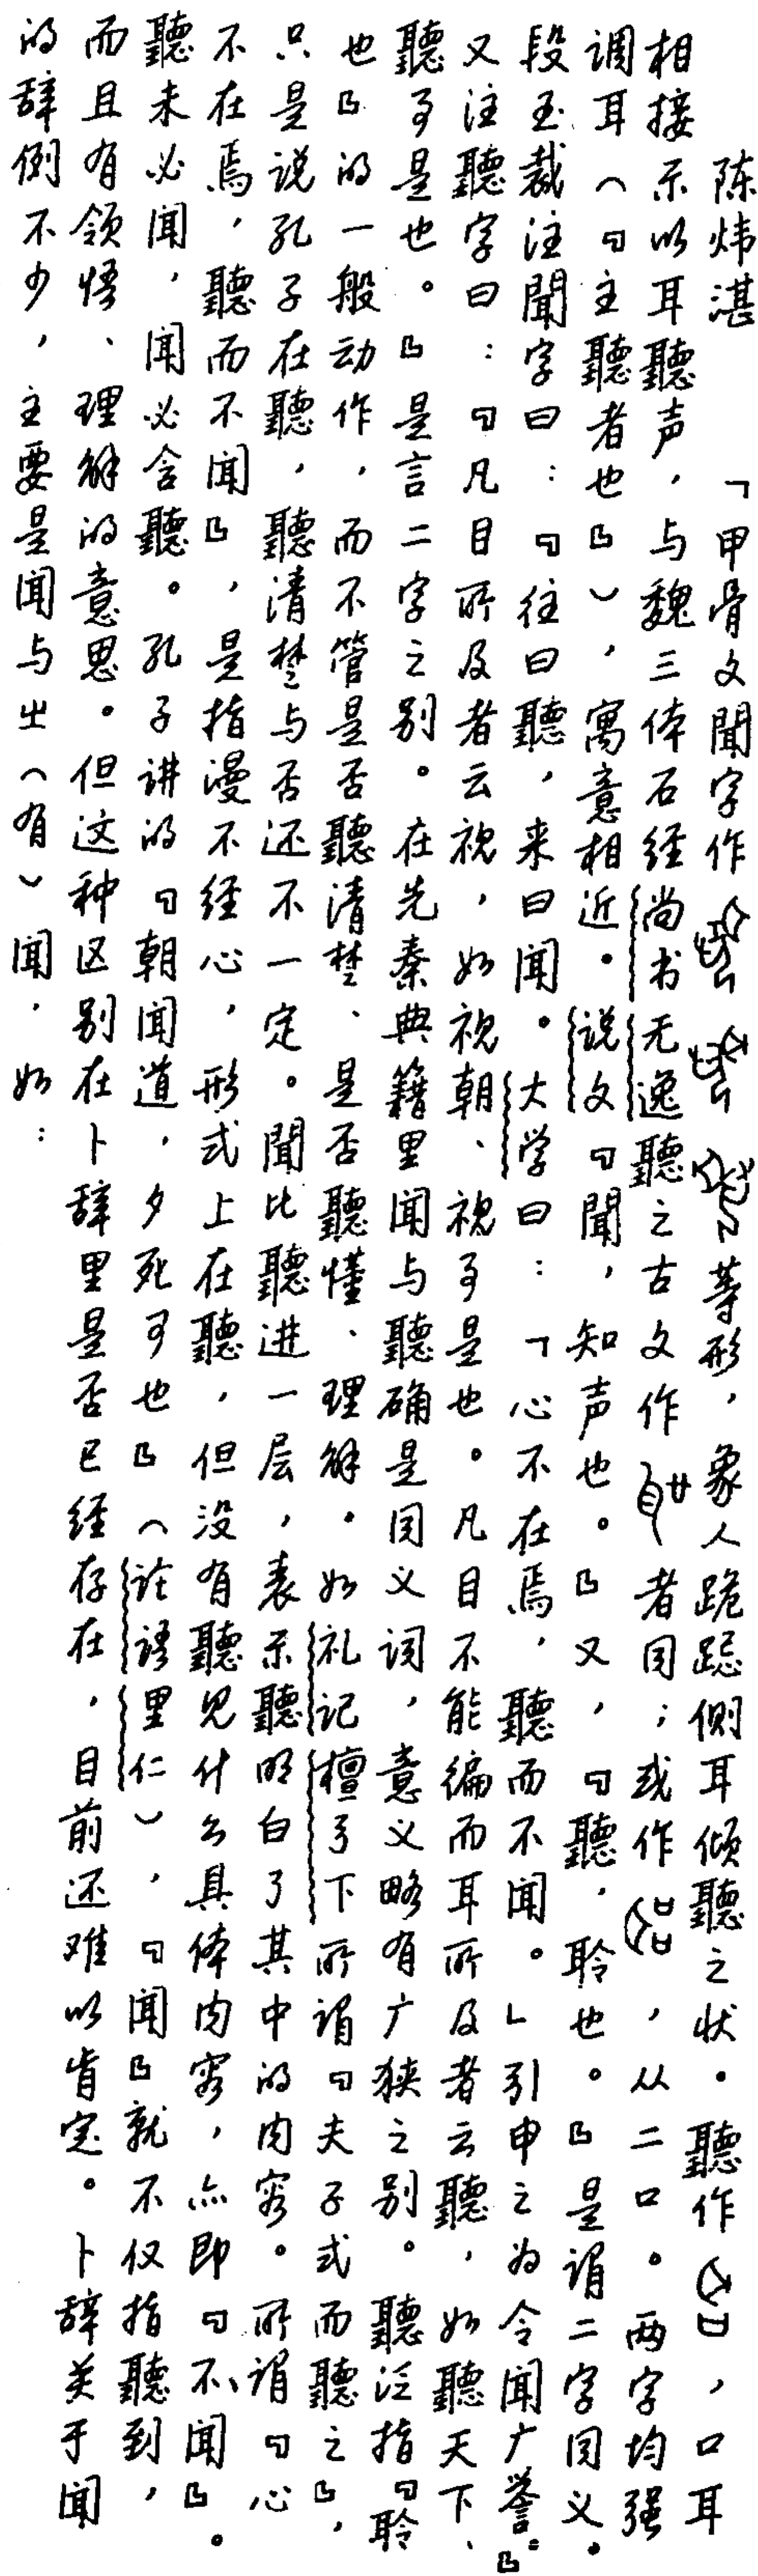 陈炜湛　「甲骨文聞字作等形，象人跪跽侧耳倾聽之状。聽作，口耳
相接示以耳聽声，与魏三体石经尚书无逸聽之古文作者同；或作，从二口。两字均强
调耳（『主聽者也』），寓意相近。说文『聞，知声也。』又，『聽，聆也。』是谓二字同义。
段玉裁注聞字曰：『往曰聽，来曰闻。大学曰：「心不在焉，聽而不闻。」引申之为令闻广誉。』
又注聽字曰：『凡目所及者云视，如视朝、视事是也。凡目不能徧而耳所及者云聽，如聽天下、
聽事是也。』是言二字之别。在先秦典籍里闻与聽确是同义词，意义略有广狭之别。聽泛指『聆
也』的一般动作，而不管是否聽清楚、是否聽懂、理解。如礼记檀弓下所谓『夫子式而聽之』，
只是说孔子在聽，聽清楚与否还不一定。聞比聽进一层，表示聽明白了其中的内容。所谓『心
不在焉，聽而不闻』，是指漫不经心，形式上在聽，但没有聽见什么具体内容，亦即『不闻』。
聽未必闻，闻必含聽。孔子讲的『朝闻道，夕死可也』（论语里仁），『闻』就不仅指聽到，
而且有领悟、理解的意思。但这种区别在卜辞里是否已经存在，目前还难以肯定。卜辞关于闻
的辞例不少，主要是闻与㞢（有）闻，如：